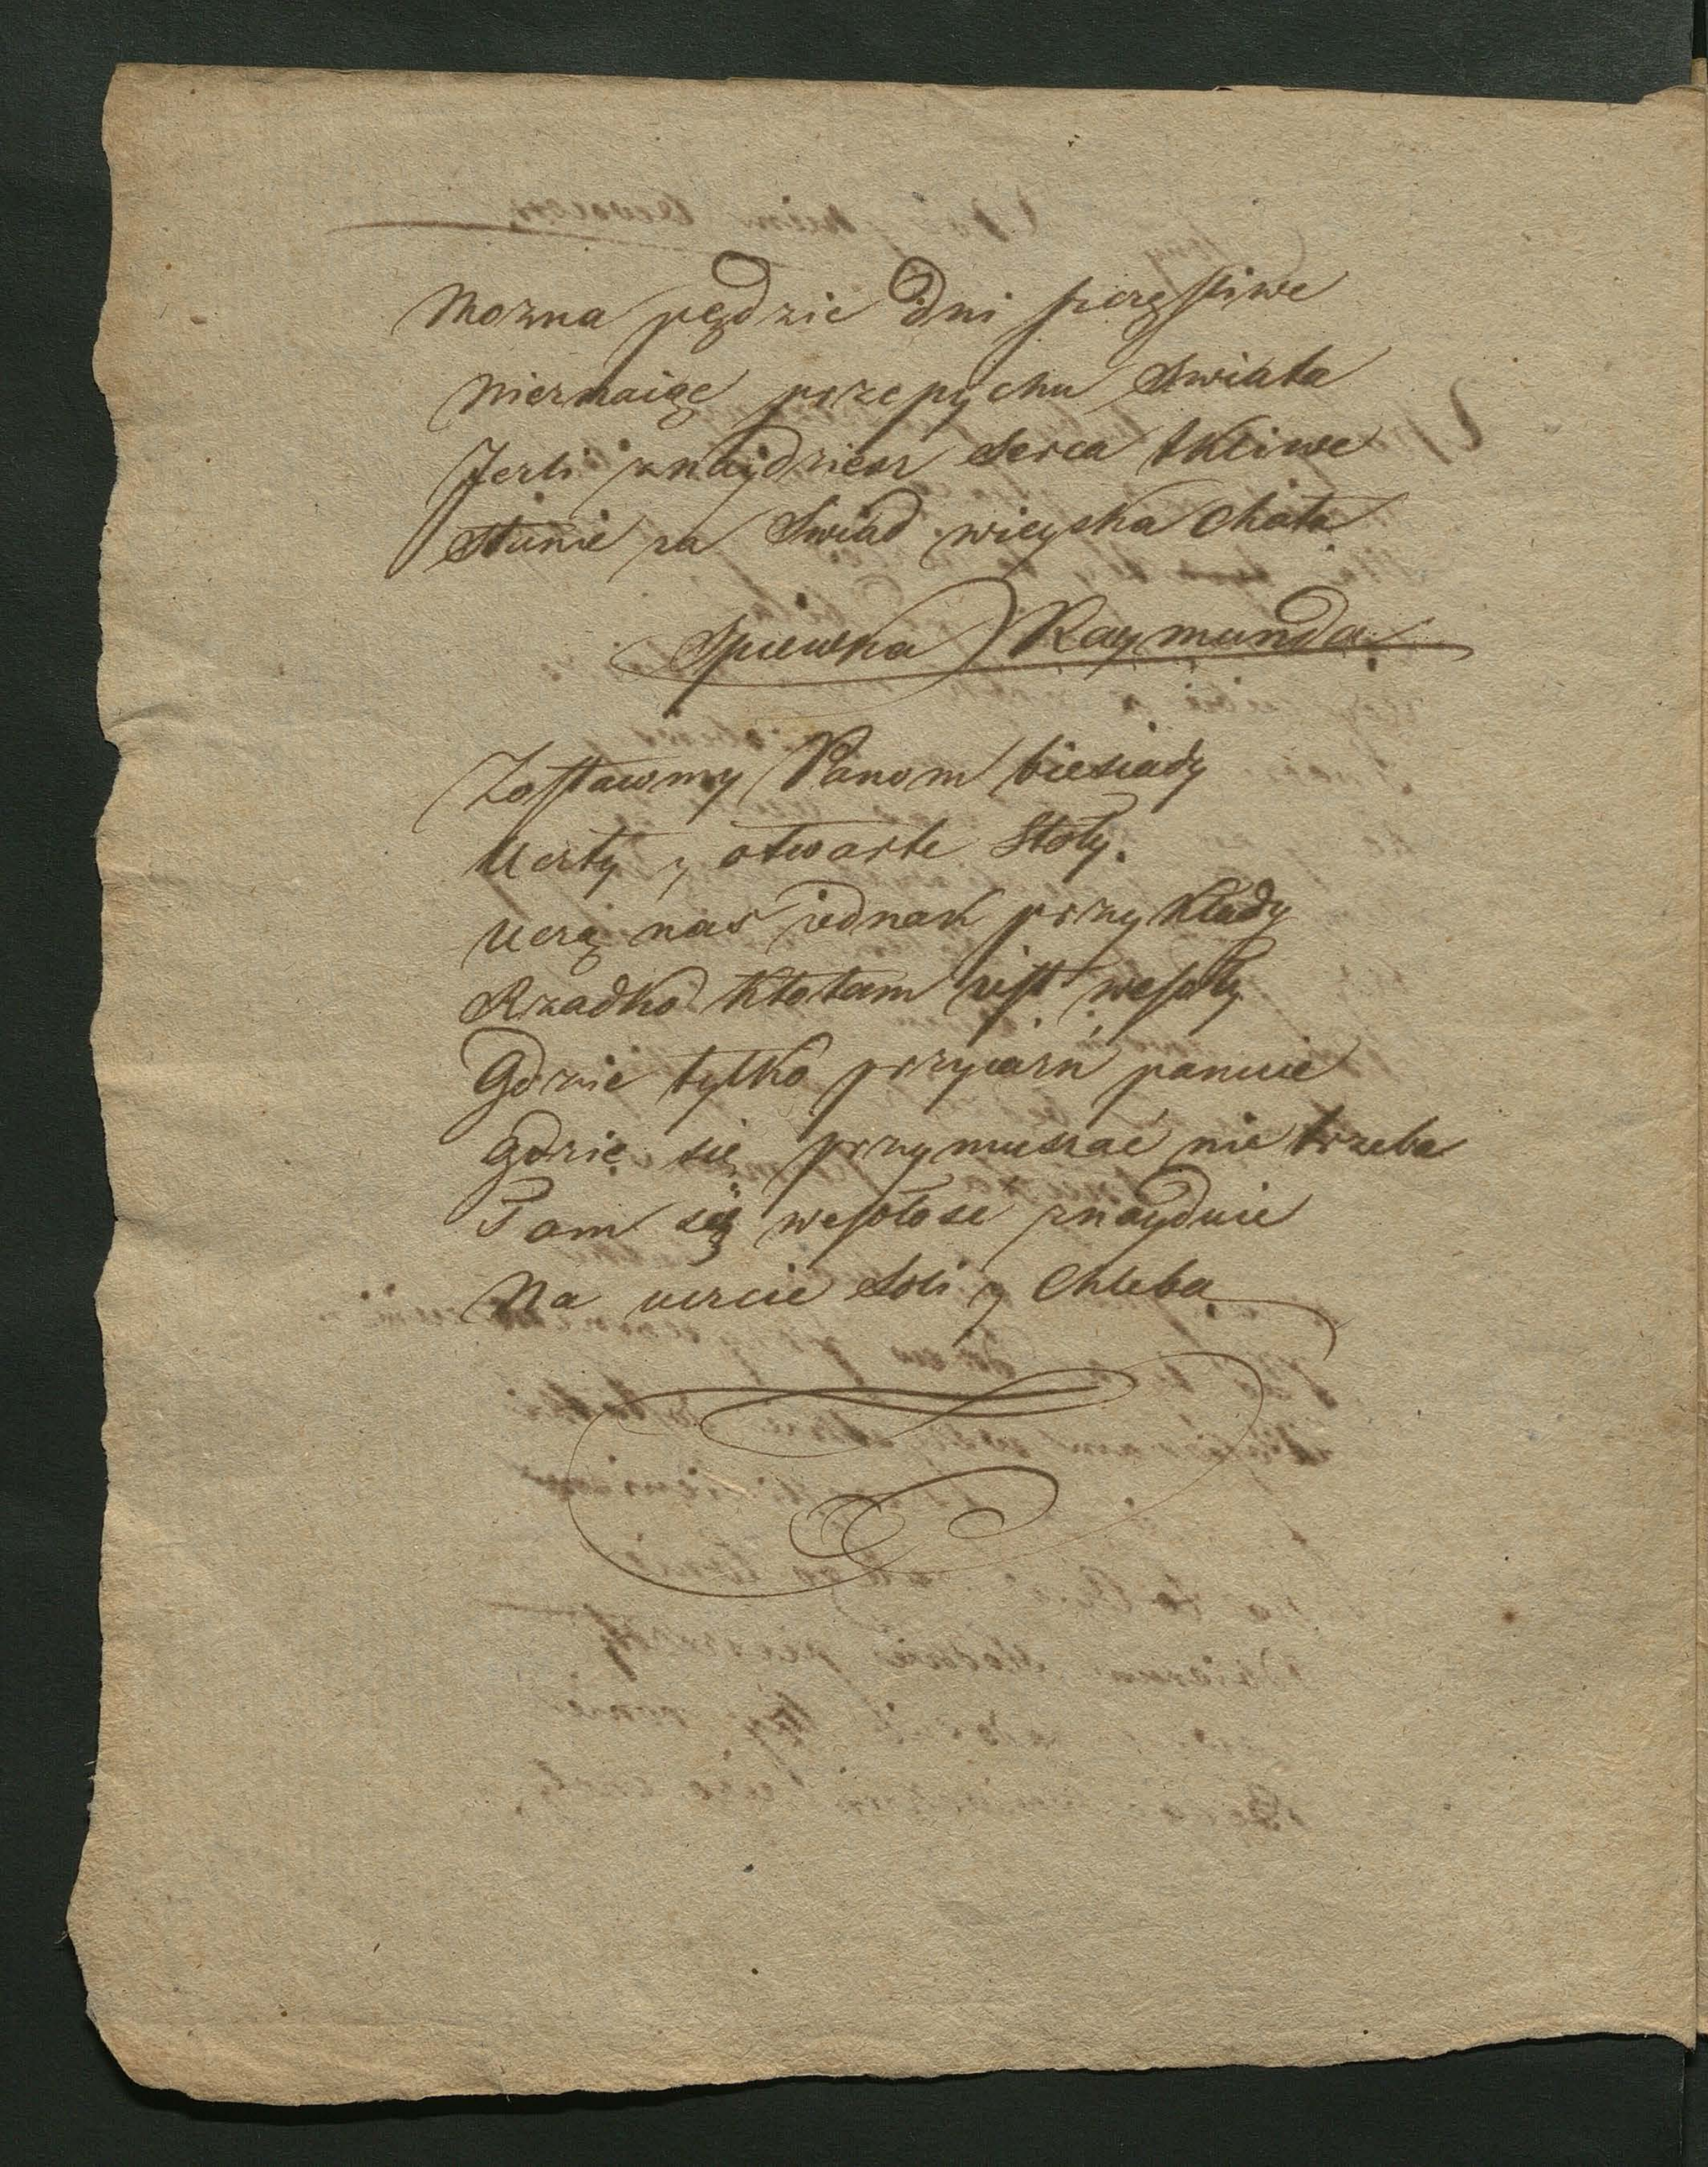 Mozna pędzic dni szczęsliwe
Nieznaiąc przepychu Swiata
Jezli znaydziesz Serca tkliwe
Stanie za Swiad wieyska Chata
Spiewka Raymunda
Zostawmy Panom biesiady
Uczty y otwarte Stoły.
Uczą nas iednak przykłady
Rzadko kto tam iest wesoły
Gdzie tylko przyiazń panuie
Gdzie się przymuszać nie trzeba
Tam się wesołosc znayduie
Na uczcie Soli y Chleba